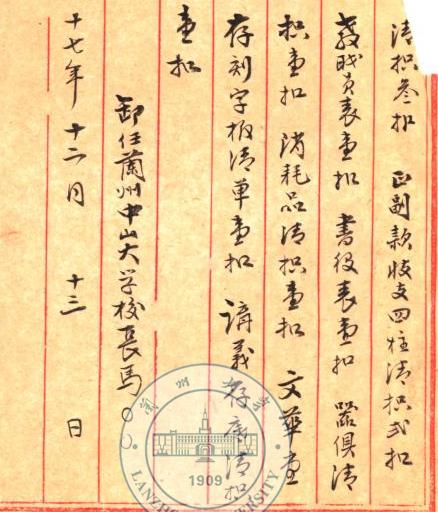 清折叁扣 正副款收支四柱清折弍扣
教职员表壹扣 书役表壹扣 器俱清
折壹扣 消耗品清折壹扣 文华壹
存刻字板清单壹扣 讲义存库清扣
壹扣
卸任兰州中山大学校长马
十七年十二月十三日
兰州
1909
LANZHOU UNIVERSITY